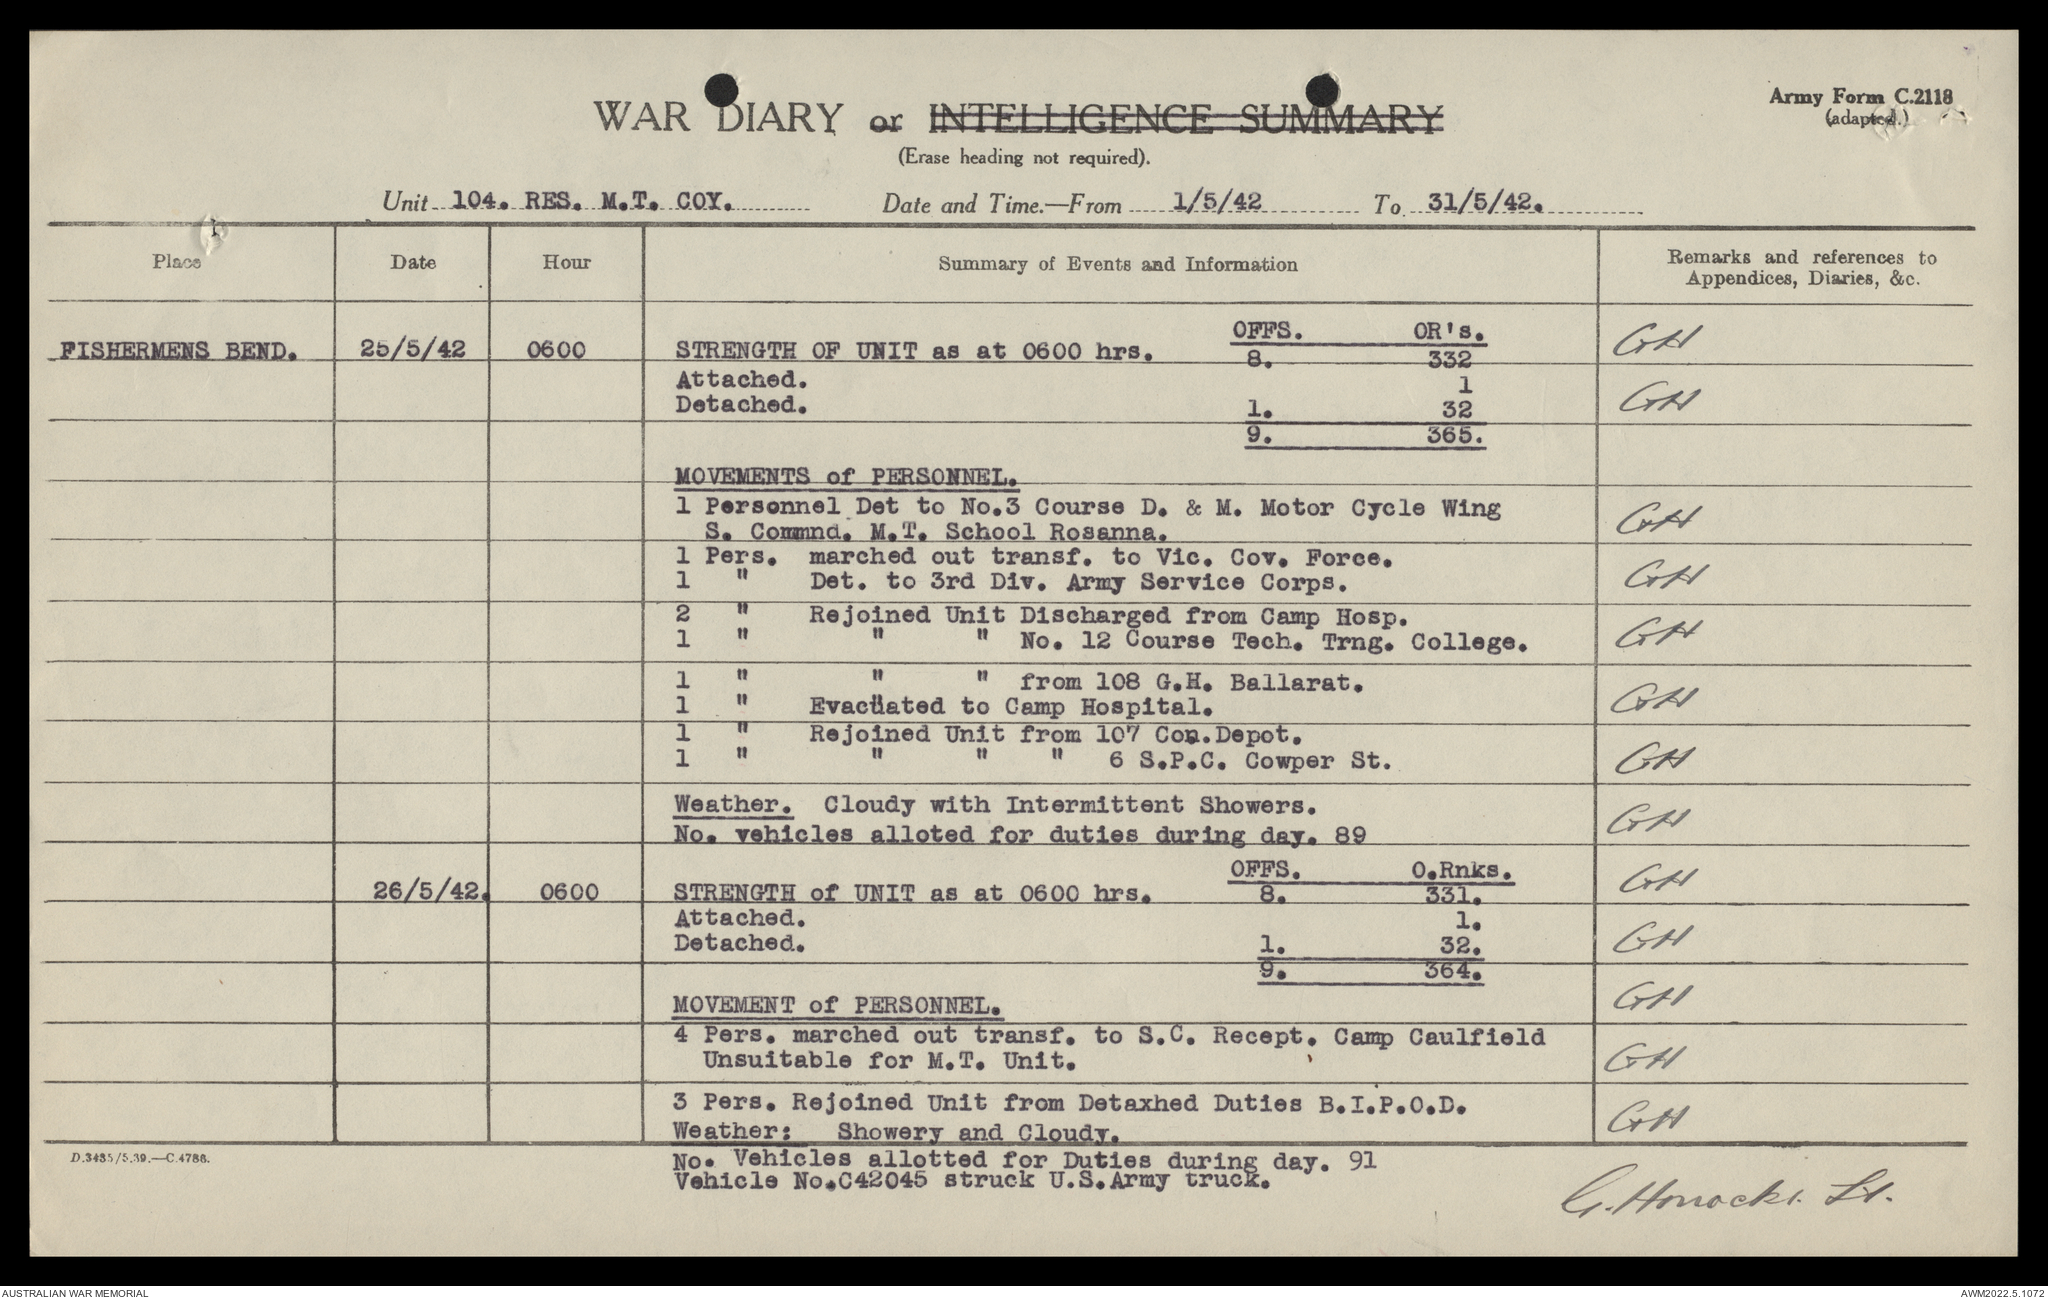 Army Form C.2118
(adapted.)
WAR DIARY or INTELLIGENCE SUMMARY
(Erase heading not required).
Unit 104. RES. M.T. COY. Date and Time.—From 1/5/42 To 31/5/42.
Place Date Hour Summary of Events and Information Remarks and references to
Appendices, Diaries, &c.
OFFS. OR's.
FISHERMENS BEND. 25/5/42 0600 STRENGTH OF UNIT as at 0600 hrs. 8. 332 GH
Attached. 1
Detached. 1. 32 GH
9. 365.
MOVEMENTS of PERSONNEL.
1 Personnel Det to No.3 Course D. & M. Motor Cycle Wing
S. Commnd. M.T. School Rosanna. GH
1 Pers. marched out transf. to Vic. Cov. Force.
1 " Det. to 3rd Div. Army Service Corps. GH
2 " Rejoined Unit Discharged from Camp Hosp.
1 " " " No. 12 Course Tech. Trng. College. GH
1 " " " from 108 G.H. Ballarat.
1 " Evacuated to Camp Hospital. GH
1 " Rejoined Unit from 107 Con.Depot.
1 " " " " 6 S.P.C. Cowper St. GH
Weather. Cloudy with Intermittent Showers.
No. vehicles alloted for duties during day. 89 GH
OFFS. O.Rnks.
26/5/42. 0600 STRENGTH of UNIT as at 0600 hrs. 8. 331. GH
Attached. 1.
Detached. 1. 32. GH
9. 364.
MOVEMENT of PERSONNEL. GH
4 Pers. marched out transf. to S.C. Recept. Camp Caulfield
Unsuitable for M.T. Unit. GH
3 Pers. Rejoined Unit from Detaxhed Duties B.I.P.O.D. GH
Weather: Showery and Cloudy.
D.3485/5.39.—C.4786.
No. Vehicles allotted for Duties during day. 91
Vehicle No.C42045 struck U.S.Army truck.
G. Lt.
AUSTRALIAN WAR MEMORIAL AWM2022.5.1072